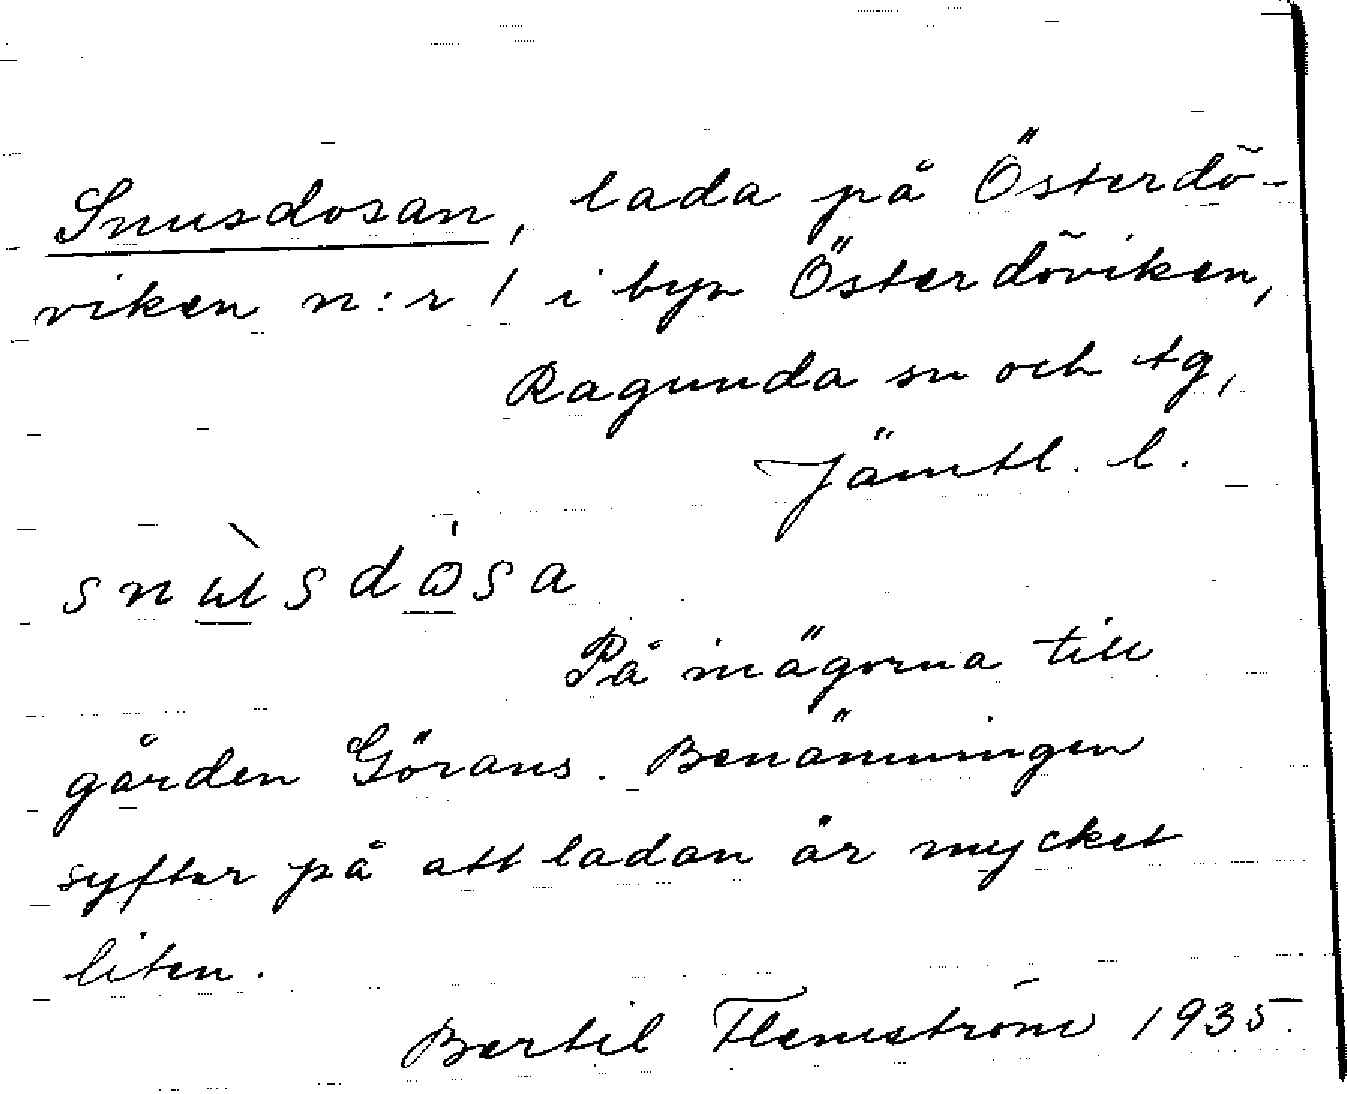 Snusdosan, lada på Österdö-
viken n:r 1 i byn Österdöviken,
Ragunda sn och tg,
Jämtl. l.
snùsdósa
På inägorna till
gården Görans. Benämningen
syftar på att ladan är mycket
liten.
Bertil Flemström 1935.